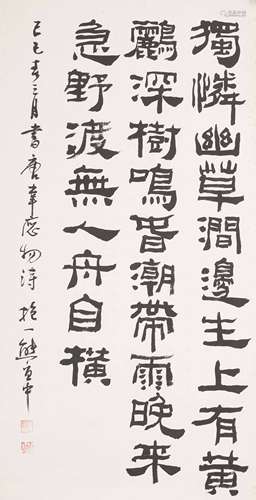 獨憐幽草澗邊生上有黃
鸝深樹鳴春潮帶雨晚來
急野渡無人舟自橫
己巳春三月書唐韋應物詩 抱一熊宜中